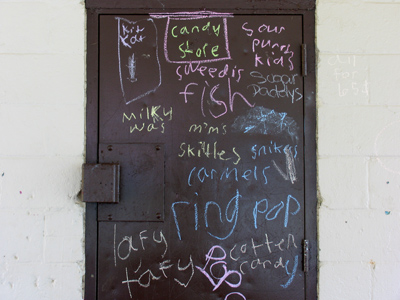 kit
kat
candy
store
sour
punch
kids
sweedis
fish
Sugar
Dadelys
all
for
milky
was
m'ms
skittles
snikers
carmels
ring pop
lafy
tafy
cotten
candy